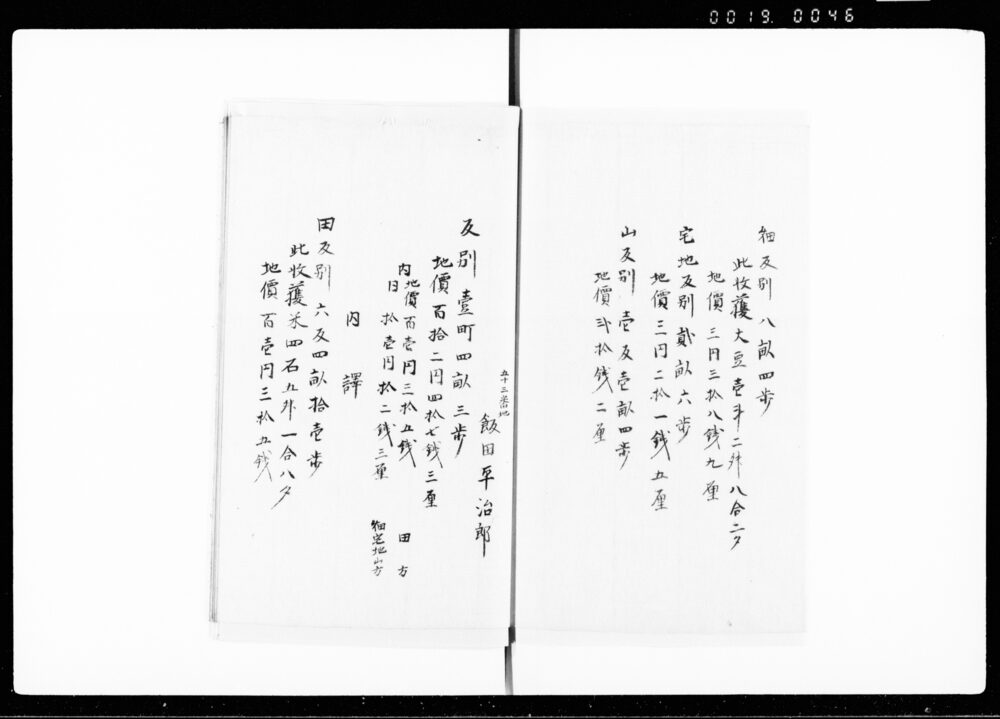 0019. 0046
畑反別 八畝四歩
此收獲大豆壱斗二升八合二夕
地價 三円三拾八銭九厘
宅地反別 貳畝六歩
地價三円二拾一銭五厘
山反別 壱反壱畝四歩
地價 拾銭二厘
五十三番地
飯田平治郎
反別 壹町四畝三歩
地價百拾二円四拾七銭三厘
内地價百壱円三拾五銭 田方
日 拾壱円拾二銭三厘 畑宅地山方
内譯
田反別 六反四畝拾壱歩
此收獲米四石九升一合八夕
地價百壱円三拾五銭